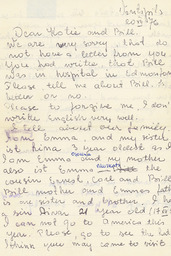 Dear Katie and Bill.
We are very sorry, that do
not have a letter from you
You had write, that Bill
was in hospital in Edmonton
Please, tell me about Bill.
better or no.
Please to forgive me, I don't
write English very well.
I tell about our family,
I am Emma, and my sister
ist Rema 3 year oldest as I
I am Emma and my mother
also ist Emma
cousin Ernest, Carl and Bill
Bill mother and Emma's father
is me sister and brother. I have
a sin 21 year old
I can not go to America this
year. Please, go to see the
I think you may came to visit